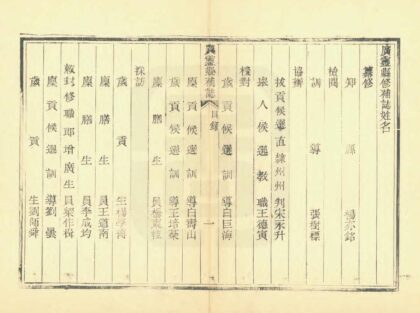 廣靈縣修補誌姓名
纂修
知縣楊亦銘
檢閱
訓導張樹標
協辦
拔貢候選直隸州州判宋永升
舉人候選教職王德寅
校對
歲貢候選訓導白巨海
廣靈縣補誌
目錄
一
廩貢候選訓導白壽山
廩貢候選訓導王培棻
廩膳生員楊
採訪
歲貢生楊
廩膳生員王道南
廩膳生員李成均
敕封修職郎增廣生員梁作楫
廩貢候選訓導劉曇
歲貢生劉師舜